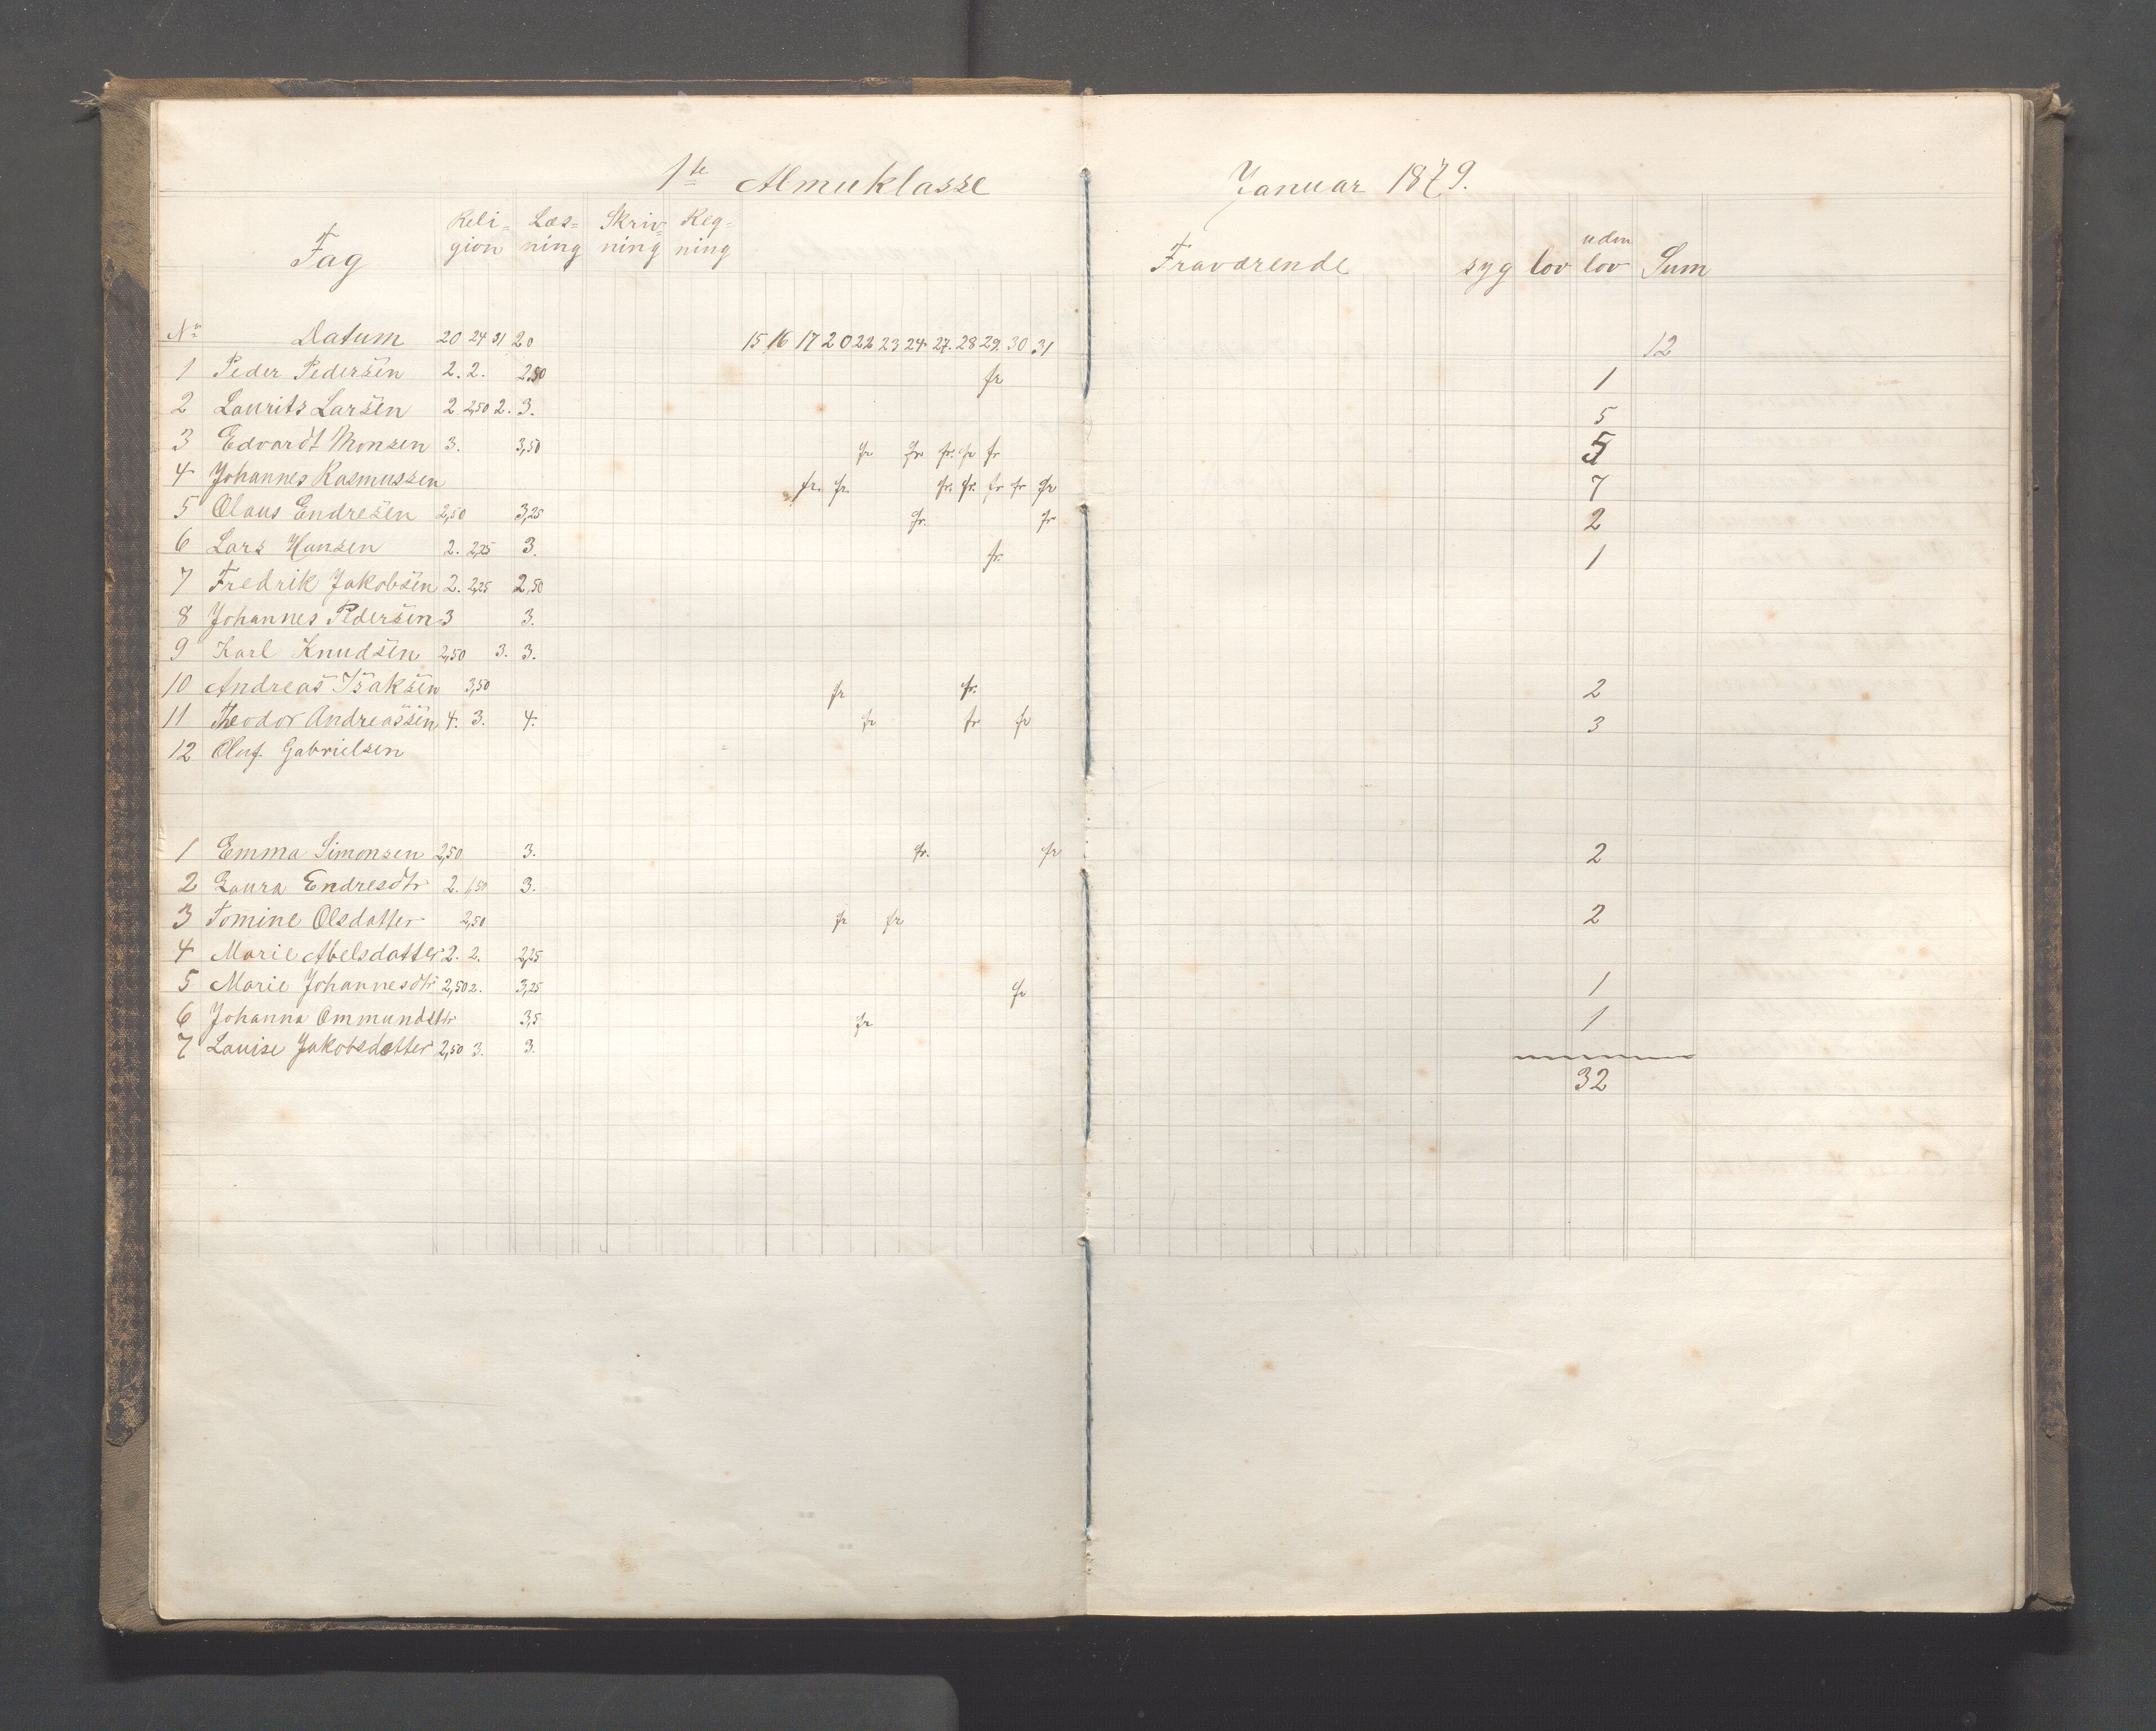 1ste Almueklasse Januar 1879.
Fag Reli=gion Læs=ning Skriv=ning Reg=ning Fraværende syg lov uden lov Sum
No Datum 20 24 31 20 15 16 17 20 22 23 24 27. 28 29. 30 31 12
1 Peder Pedersen 2. 2. 2,50 fr 1
2 Laurits Larsen 2 2,50 2. 3. 5
3 Edvardt Monsen 3. 3,50 fr fr fr. fr fr 5
4 Johannes Rasmussen fr. fr. fr. fr. fr fr fr 7
5 Olaus Endresen 2,50 3,25 fr. fr 2
6 Lars Hansen 2. 2,25 3. fr. 1
7 Fredrik Jakobsen 2. 2,25 2,50
8 Johannes Pedersen 3 3.
9 Karl Knudsen 2,50 3. 3.
10 Andreas Isaksen 3,50 fr fr. 2
11 Theodor Andreassen 4. 3. 4. fr fr fr 3
12 Oluf Gabrielsen
1 Emma Simonsen 2,50 3. fr. fr 2
2 Laura Endresdtr 2. 1,50 3.
3 Tomine Olsdatter 2,50 fr fr 2
4 Marie Abelsdatter 2. 2. 2,25
5 Marie Johannesdtr 2,50 2. 3,25 fr 1
6 Johanna Ommundsdtr 3,5 fr 1
7 Lauise Jakobsdatter 2,50 3. 3.
32